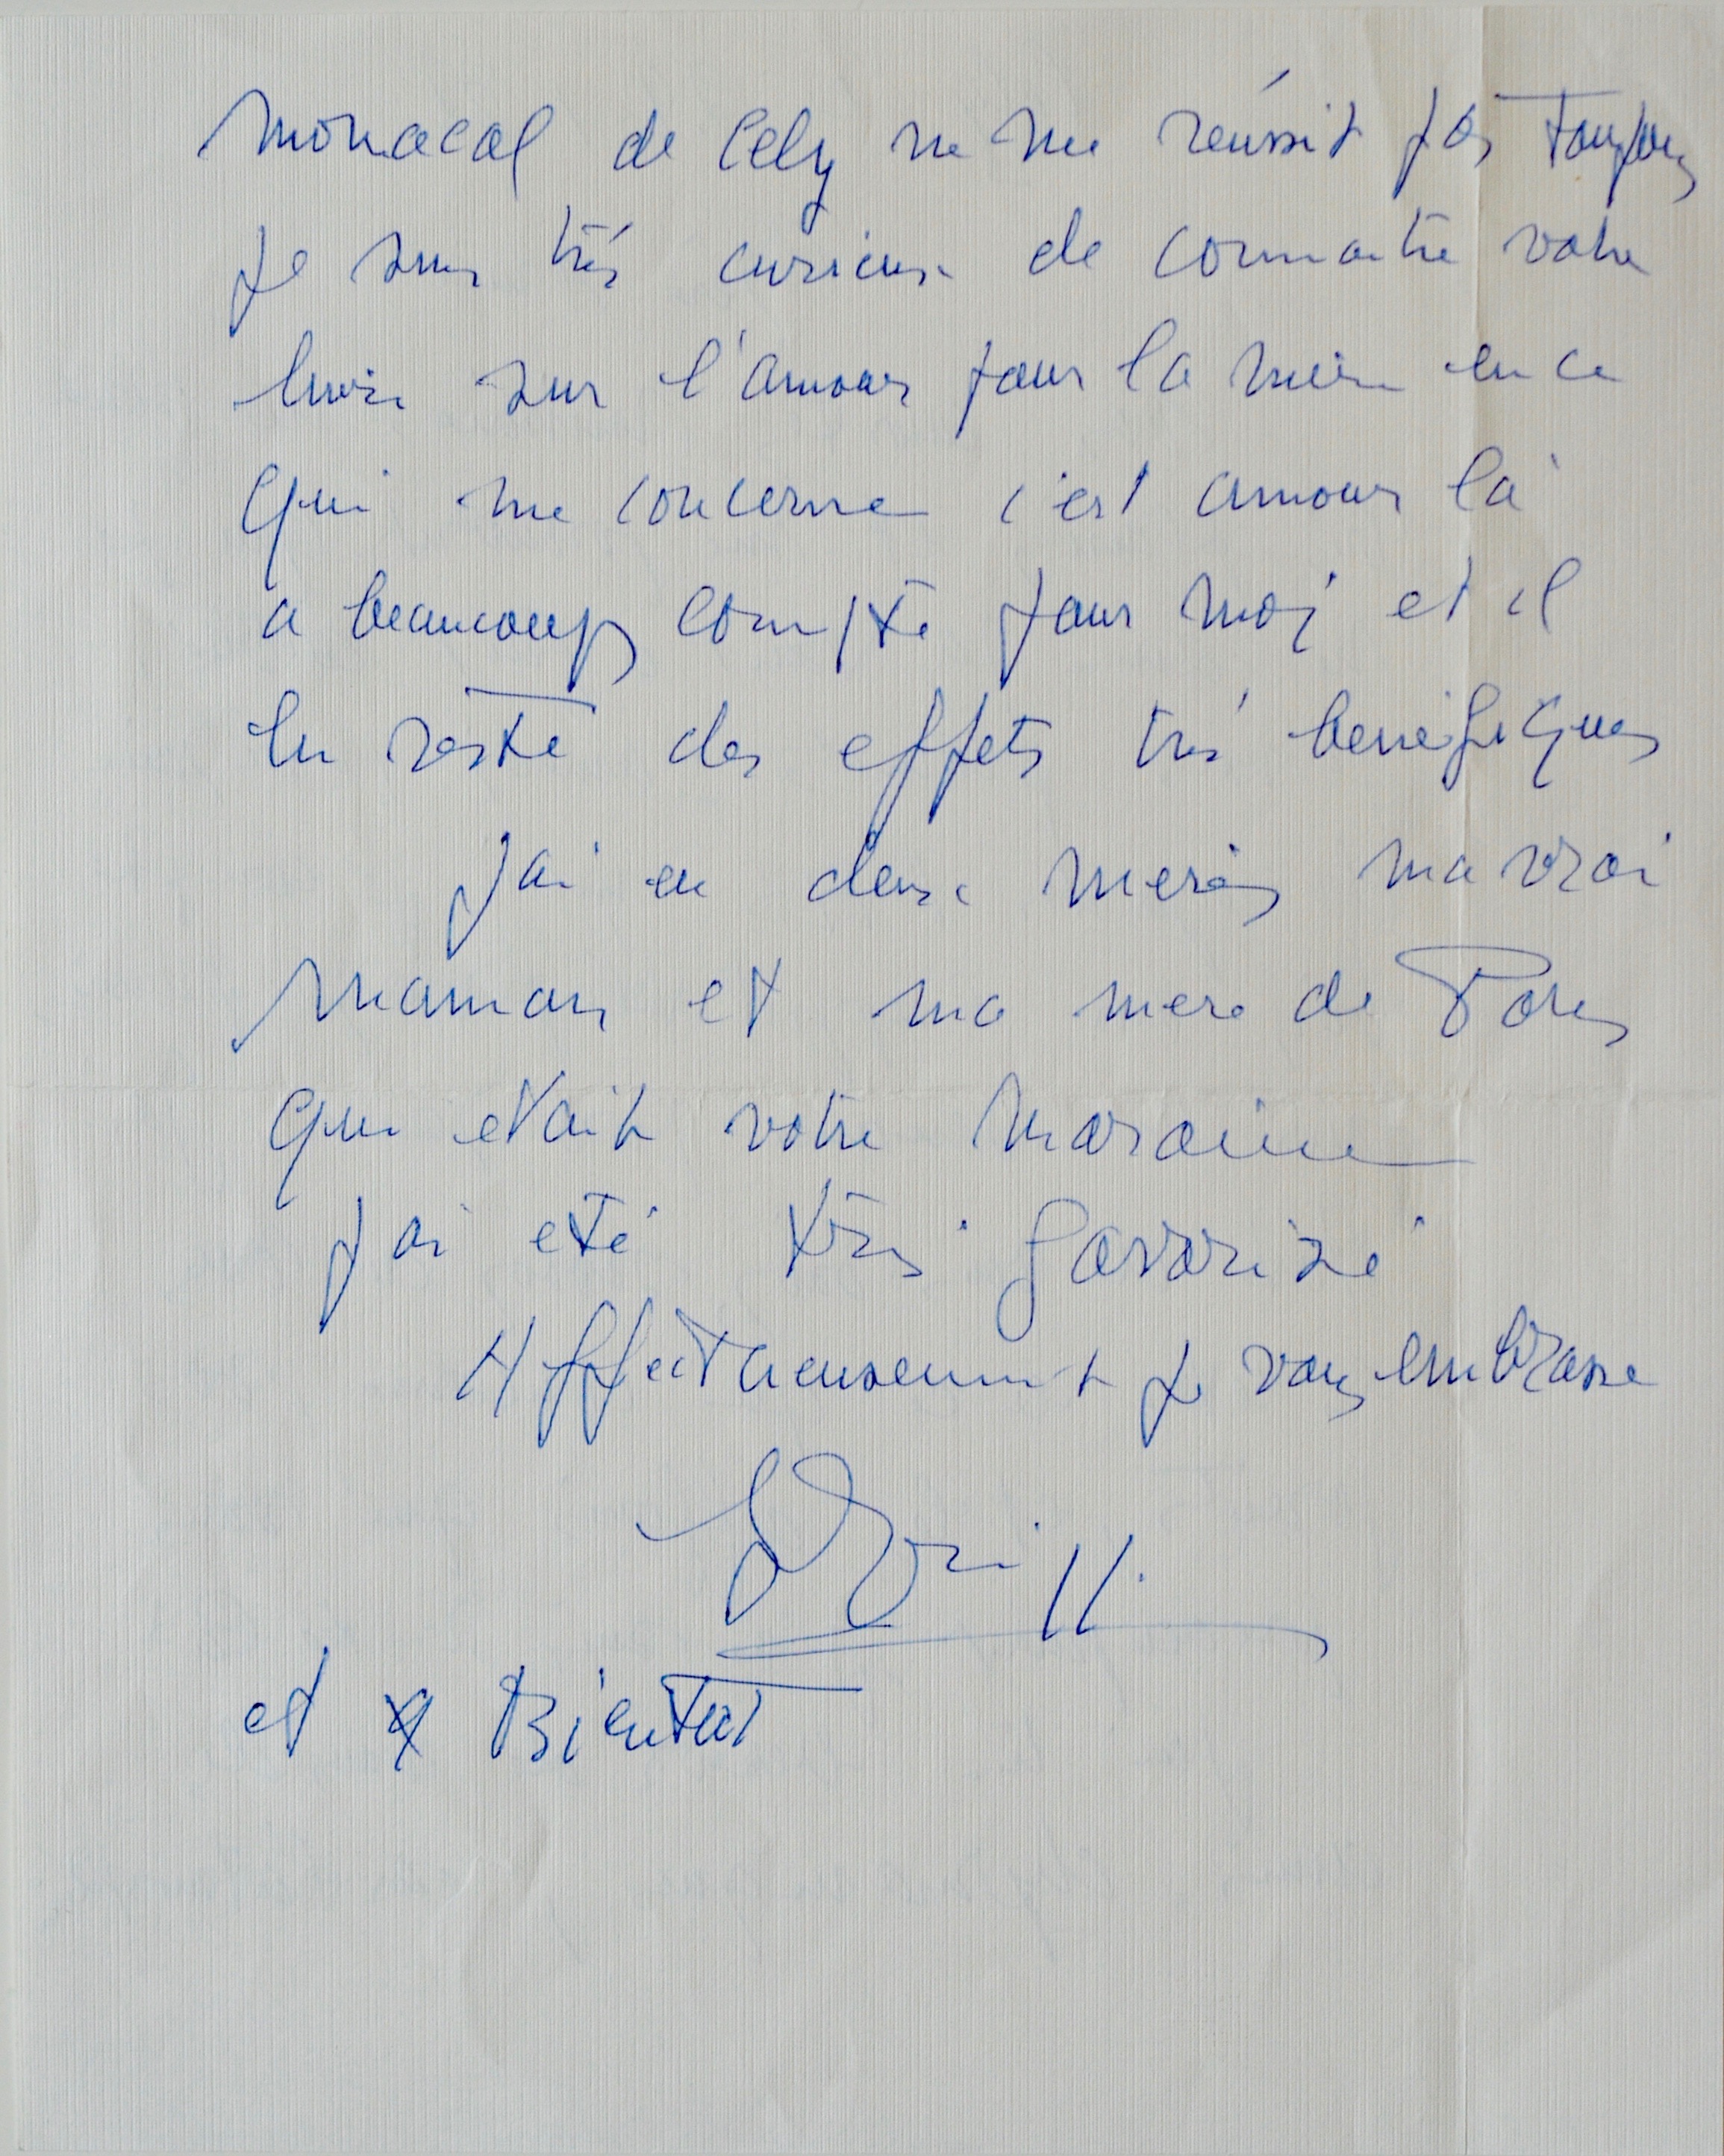 monacal de Cely ne me réussit pas toujours
Je suis très curieux de connaitre votre
livre sur l'amour pour la mère en ce
qui me concerne c'est amour là
a beaucoup compté pour moi et il
en reste des effets très benéfiques
J'ai eu deux meres ma vrai
maman et ma mere de Paris
qui etait votre maraine
J'ai eté très favorisé
Affectueusement je vous embrasse
et a Bientot